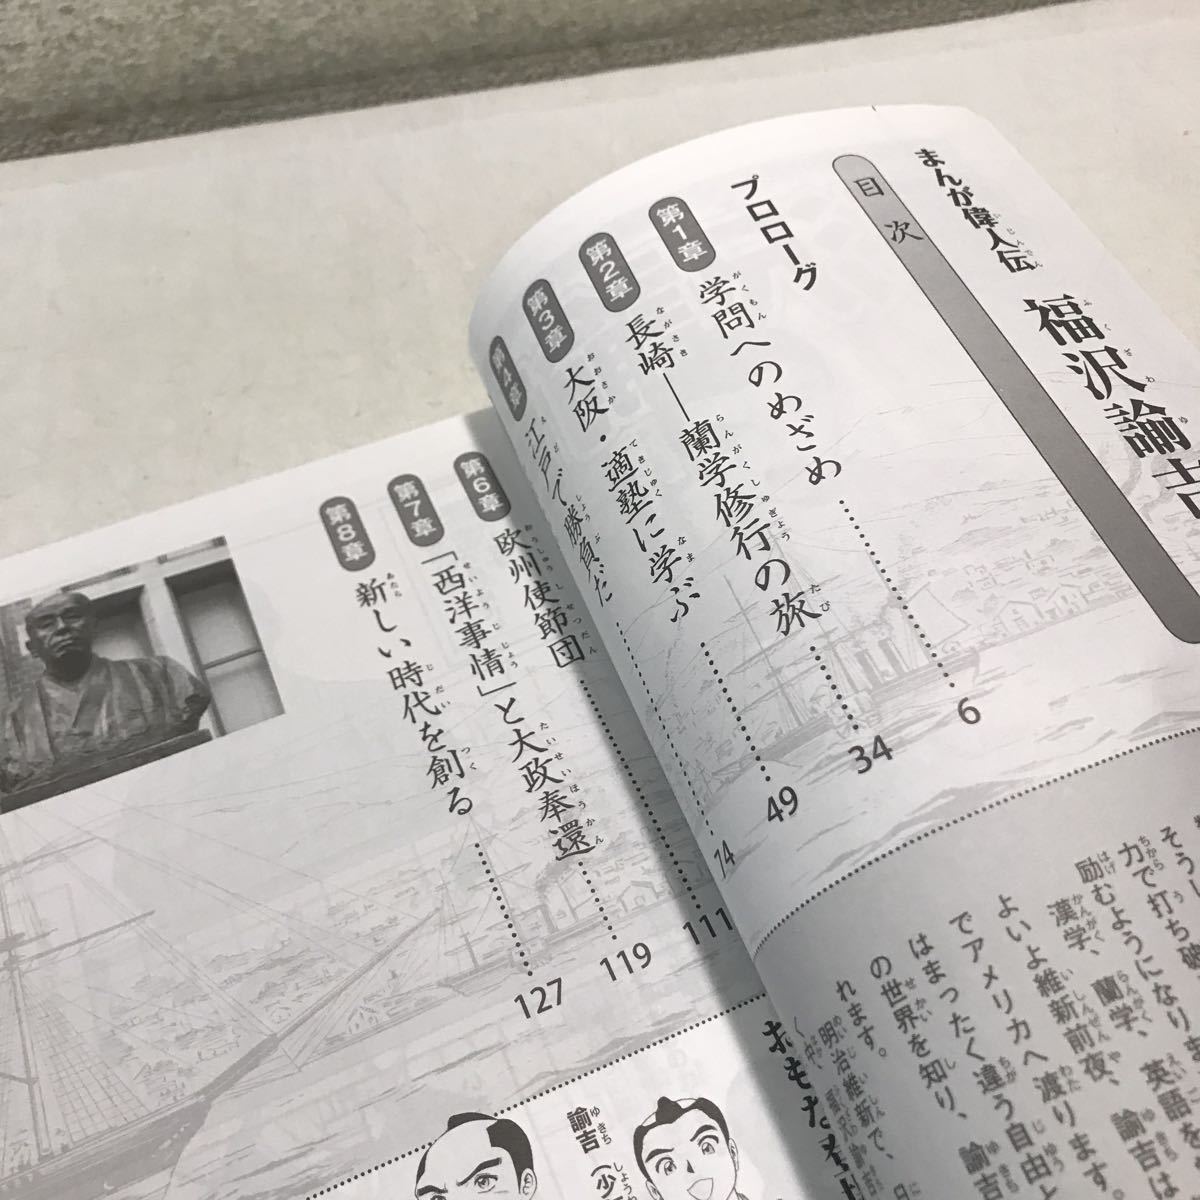 まんが偉人伝
福沢諭吉
目次
プロローグ
第1章 学問へのめざめ 6
第2章 長崎――蘭学修行の旅 34
第3章 大阪・適塾に学ぶ 49
第4章 江戸で勝負だ 74
第6章 欧州使節団 111
第7章 「西洋事情」と大政奉還 119
第8章 新しい時代を創る 127
力で打ち破
励むようになり
漢学、蘭学、英語を
よいよ維新前夜、諭吉は
でアメリカへ渡ります
はまったく違う自由と
の世界を知り、諭吉
れます。
明治維新で、日
おもな
諭吉